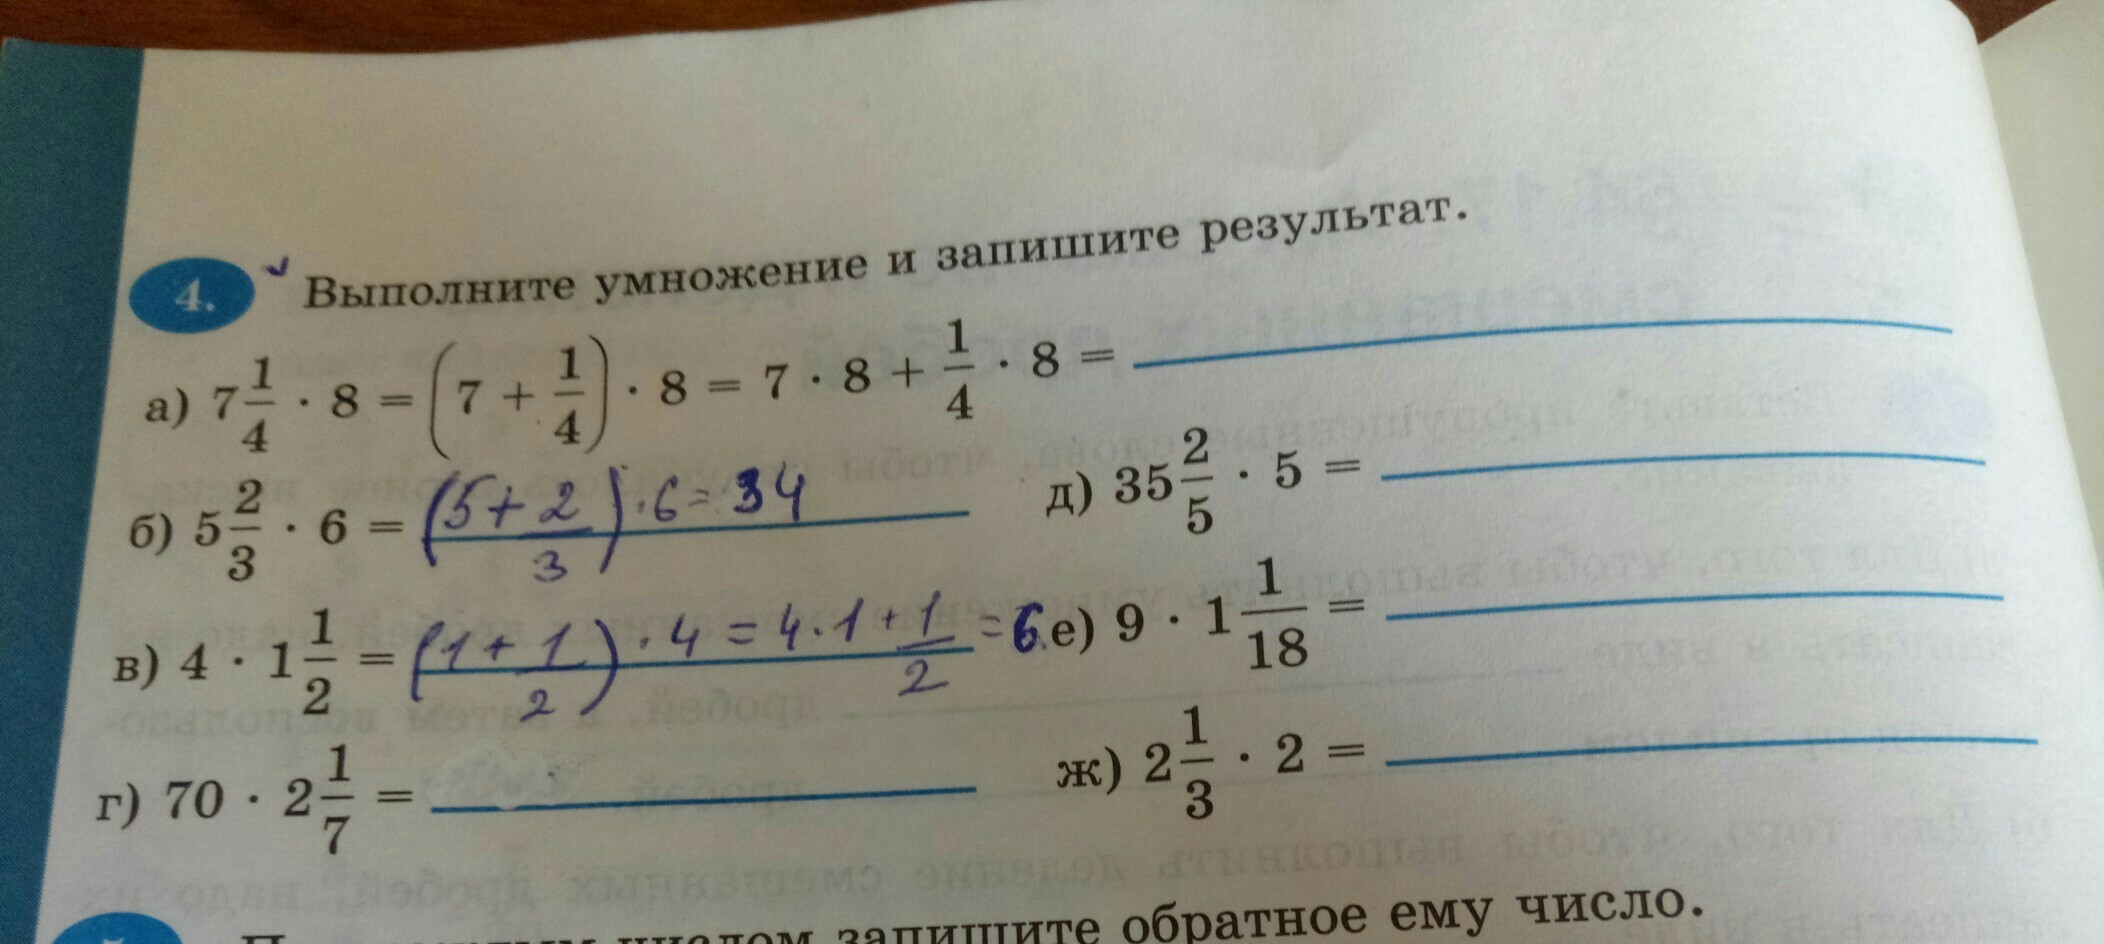 4. Выполните умножение и запишите результат.
а) 7 1/4 · 8 = (7 + 1/4) · 8 = 7 · 8 + 1/4 · 8 =
б) 5 2/3 · 6 = (5 + 2/3) · 6 = 34
в) 4 · 1 1/2 = (1 + 1/2) · 4 = 4 · 1 + 1/2 = 6
г) 70 · 2 1/7 =
д) 35 2/5 · 5 =
е) 9 · 1 1/18 =
ж) 2 1/3 · 2 =
числом запишите обратное ему число.